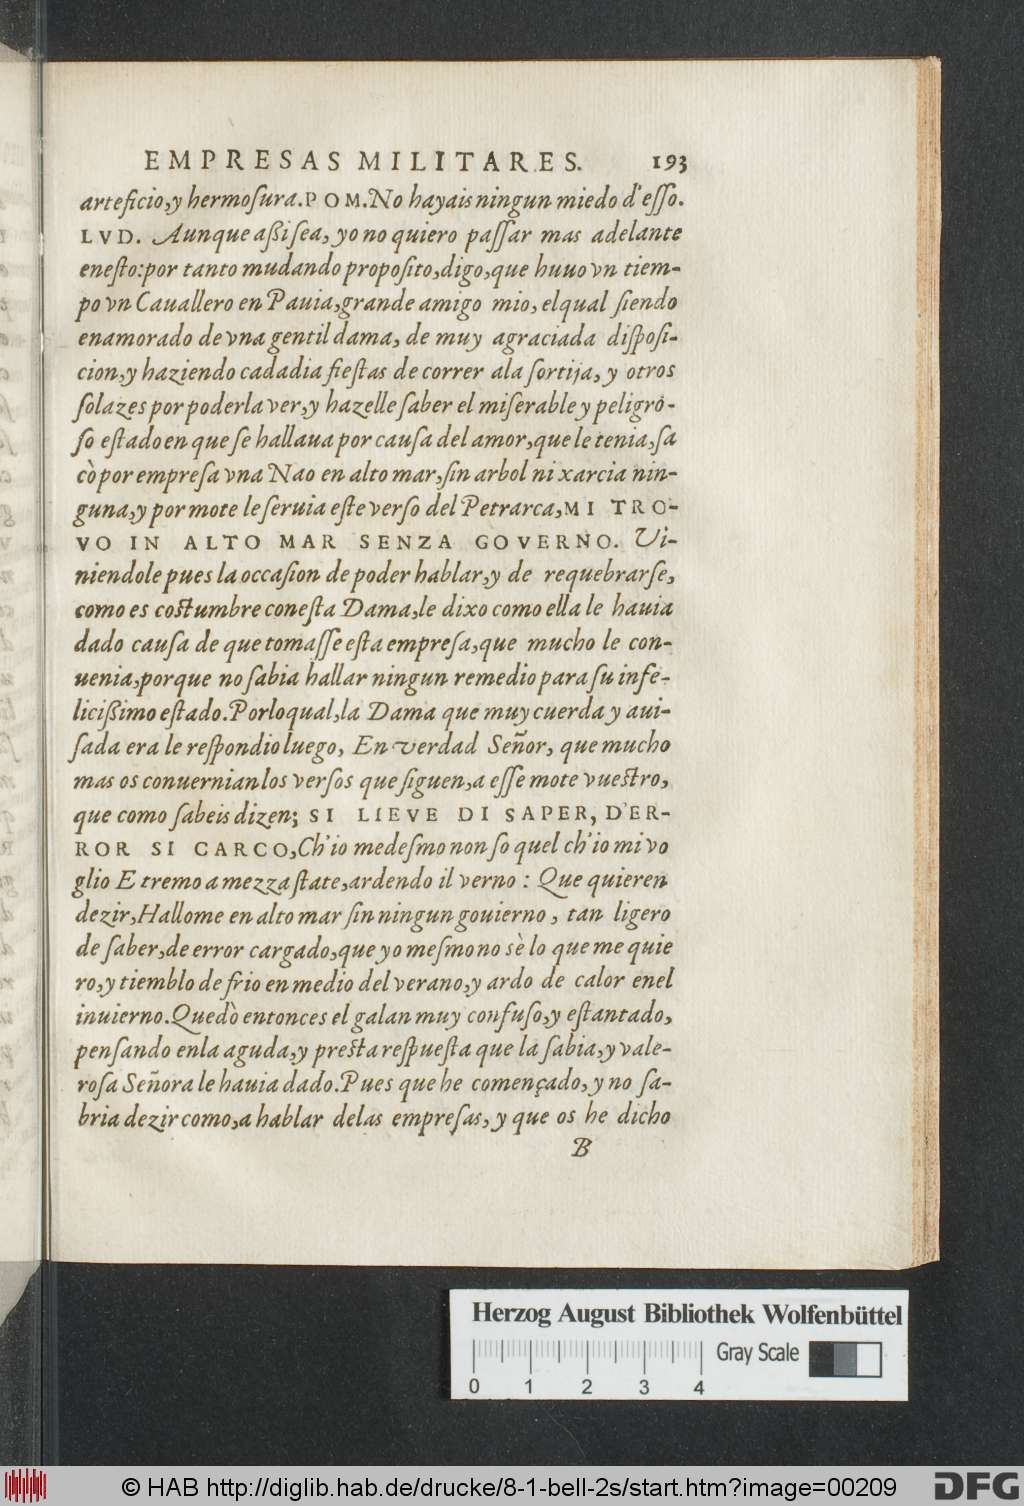 EMPRESAS MILITARES. 193
arteficio,y hermoſura.POM.No hayais ningun miedo d'eſſo.
LVD. Aunque aßi ſea, yo no quiero paſſar mas adelante
eneſto:por tanto mudando propoſito,digo,que huuo vn tiem-
po vn Cauallero en Pauia,grande amigo mio, el qual ſiendo
enamorado de vna gentil dama, de muy agraciada diſpoſi-
cion,y haziendo cada dia fieſtas de correr ala ſortija, y otros
ſolazes por poderla ver,y hazelle ſaber el miſerable y peligro-
ſo eſtado en que ſe hallaua por cauſa del amor,que le tenia,ſa
cò por empreſa vna Nao en alto mar,ſin arbol ni xarcia nin-
guna,y por mote le ſeruia eſte verſo del Petrarca,MI TRO-
VO IN ALTO MAR SENZA GOVERNO. Vi-
niendole pues la occaſion de poder hablar,y de requebrarſe,
como es coſtumbre coneſta Dama,le dixo como ella le hauia
dado cauſa de que tomaſſe eſta empreſa,que mucho le con-
uenia,porque no ſabia hallar ningun remedio para ſu infe-
licißimo eſtado.Porloqual,la Dama que muy cuerda y aui-
ſada era le reſpondio luego, En verdad Señor, que mucho
mas os conuernian los verſos que ſiguen,a eſſe mote vueſtro,
que como ſabeis dizen; SI LIEVE DI SAPER, D'ER-
ROR SI CARCO,Ch'io medeſmo non ſo quel ch'io mi vo
glio E tremo a mezza ſtate,ardendo il verno : Que quieren
dezir,Hallome en alto mar ſin ningun gouierno, tan ligero
de ſaber,de error cargado,que yo meſmo no sè lo que me quie
ro,y tiemblo de frio en medio del verano,y ardo de calor enel
inuierno.Quedò entonces el galan muy confuſo,y eſtantado,
penſando enla aguda,y preſta reſpueſta que la ſabia,y vale-
roſa Señora le hauia dado.Pues que he començado, y no ſa-
bria dezir como,a hablar delas empreſas, y que os he dicho
B
Herzog August Bibliothek Wolfenbüttel
Gray Scale
0 1 2 3 4
© HAB http://diglib.hab.de/drucke/8-1-bell-2s/start.htm?image=00209
DFG